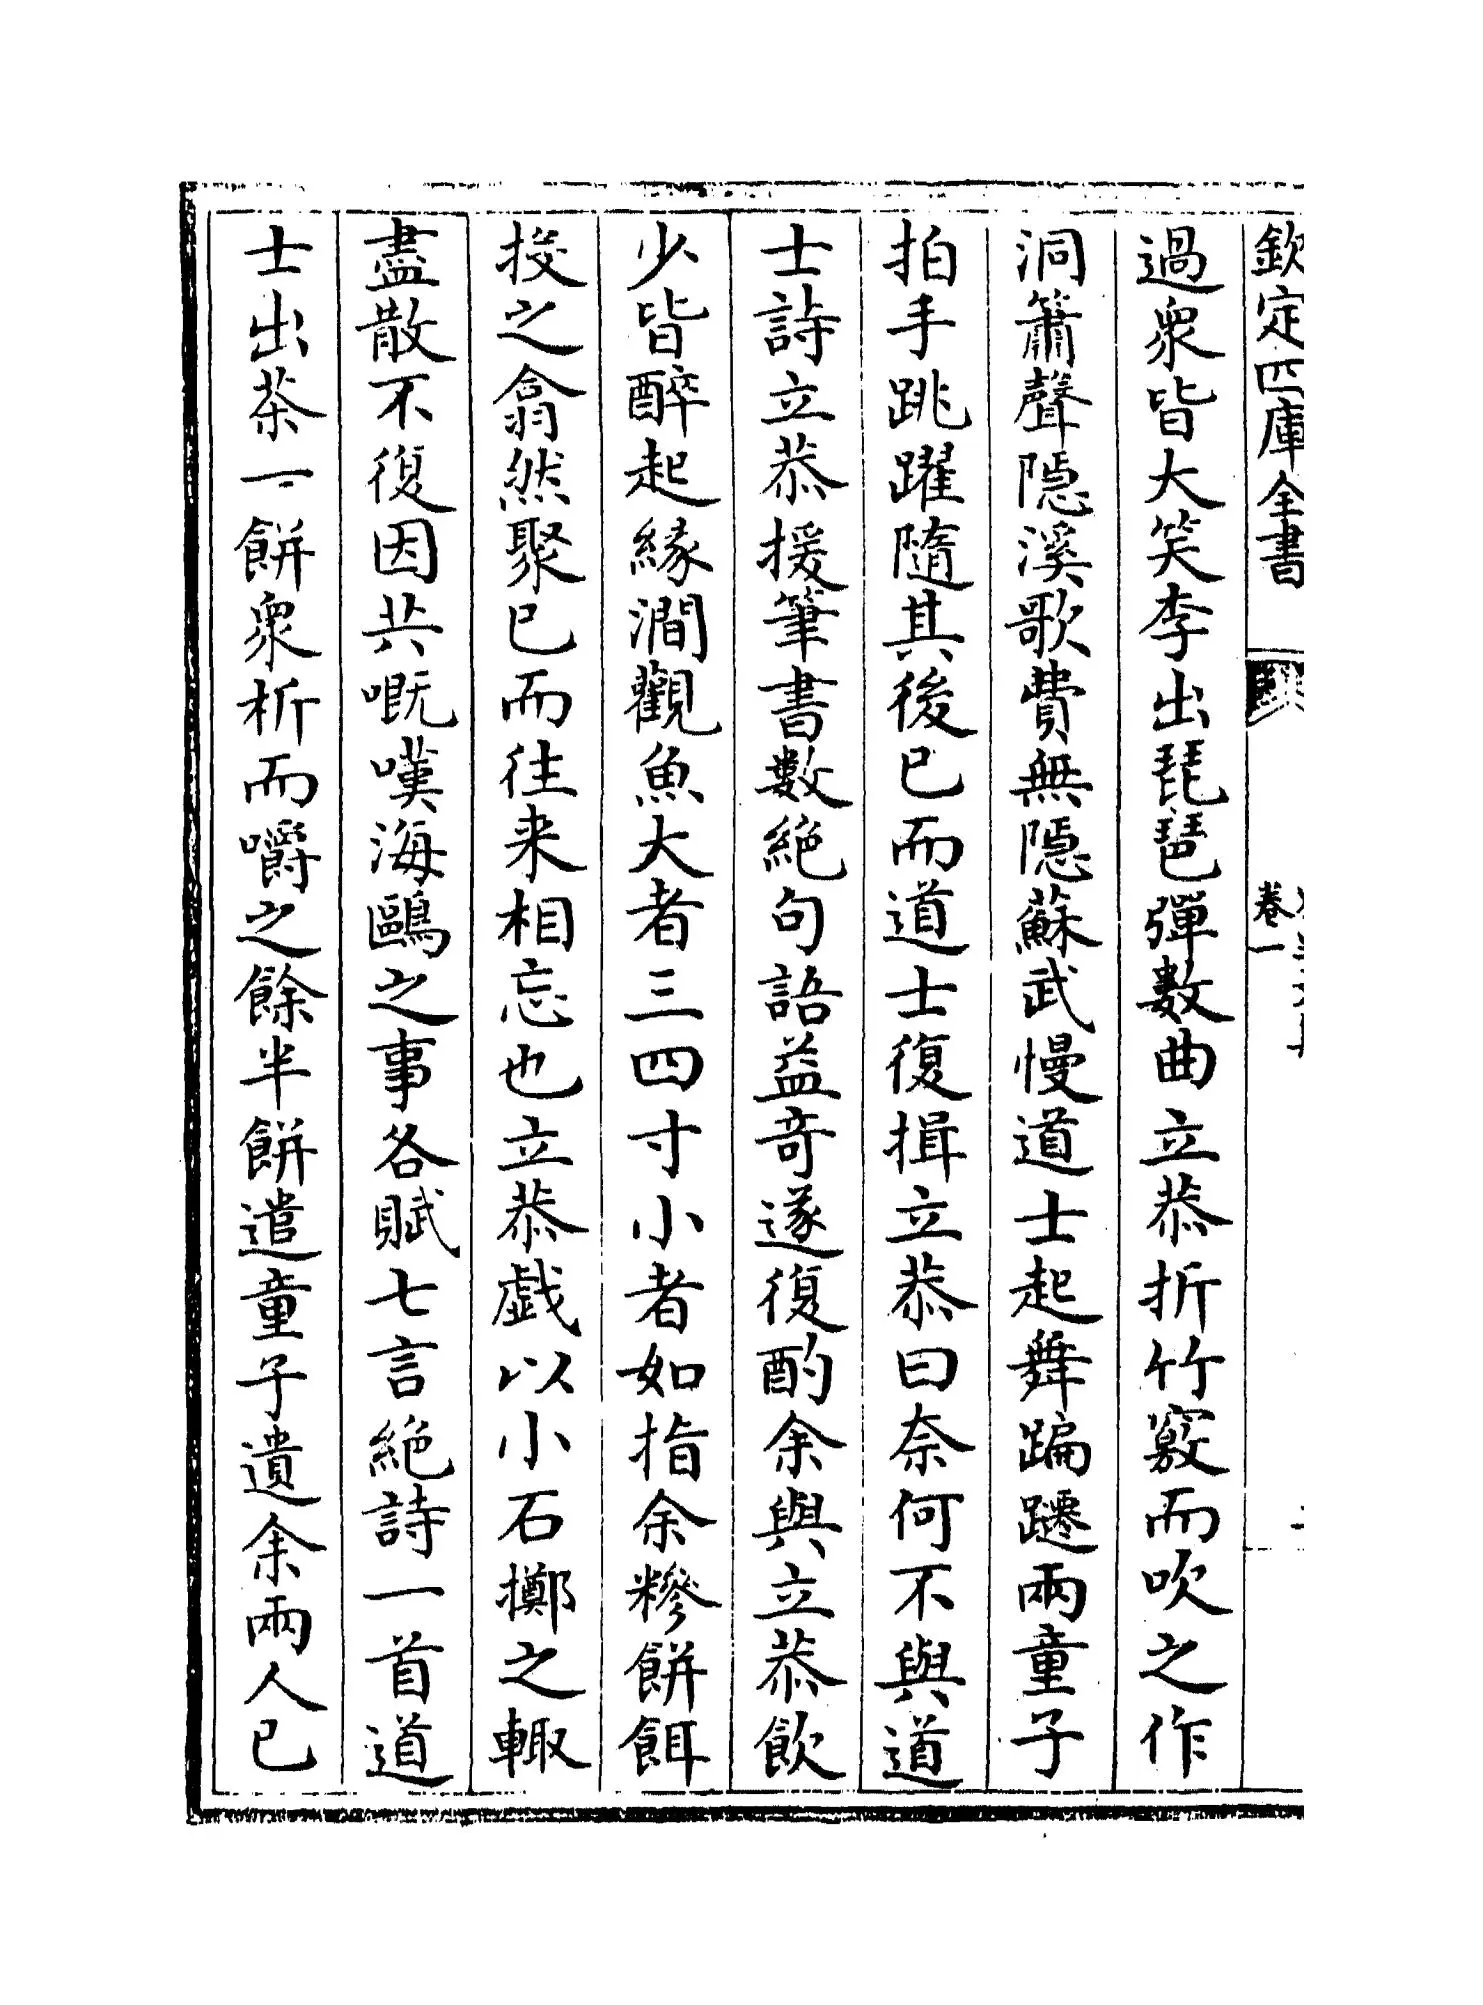 欽定四庫全書
卷一
過衆皆大笑李出琵琶彈數曲立恭折竹竅而吹之作
洞簫聲隱溪歌費無隱蘇武慢道士起舞蹁躚兩童子
拍手跳躍隨其後已而道士復揖立恭曰奈何不與道
士詩立恭援筆書數絶句語益竒遂復酌余與立恭飲
少皆醉起緣澗觀魚大者三四寸小者如指余糝餅餌
投之翕然聚已而往来相忘也立恭戯以小石擲之輙
盡散不復因共嘅嘆海鷗之事各賦七言絶詩一首道
士出茶一餅衆析而嚼之餘半餅遣童子遺余兩人已